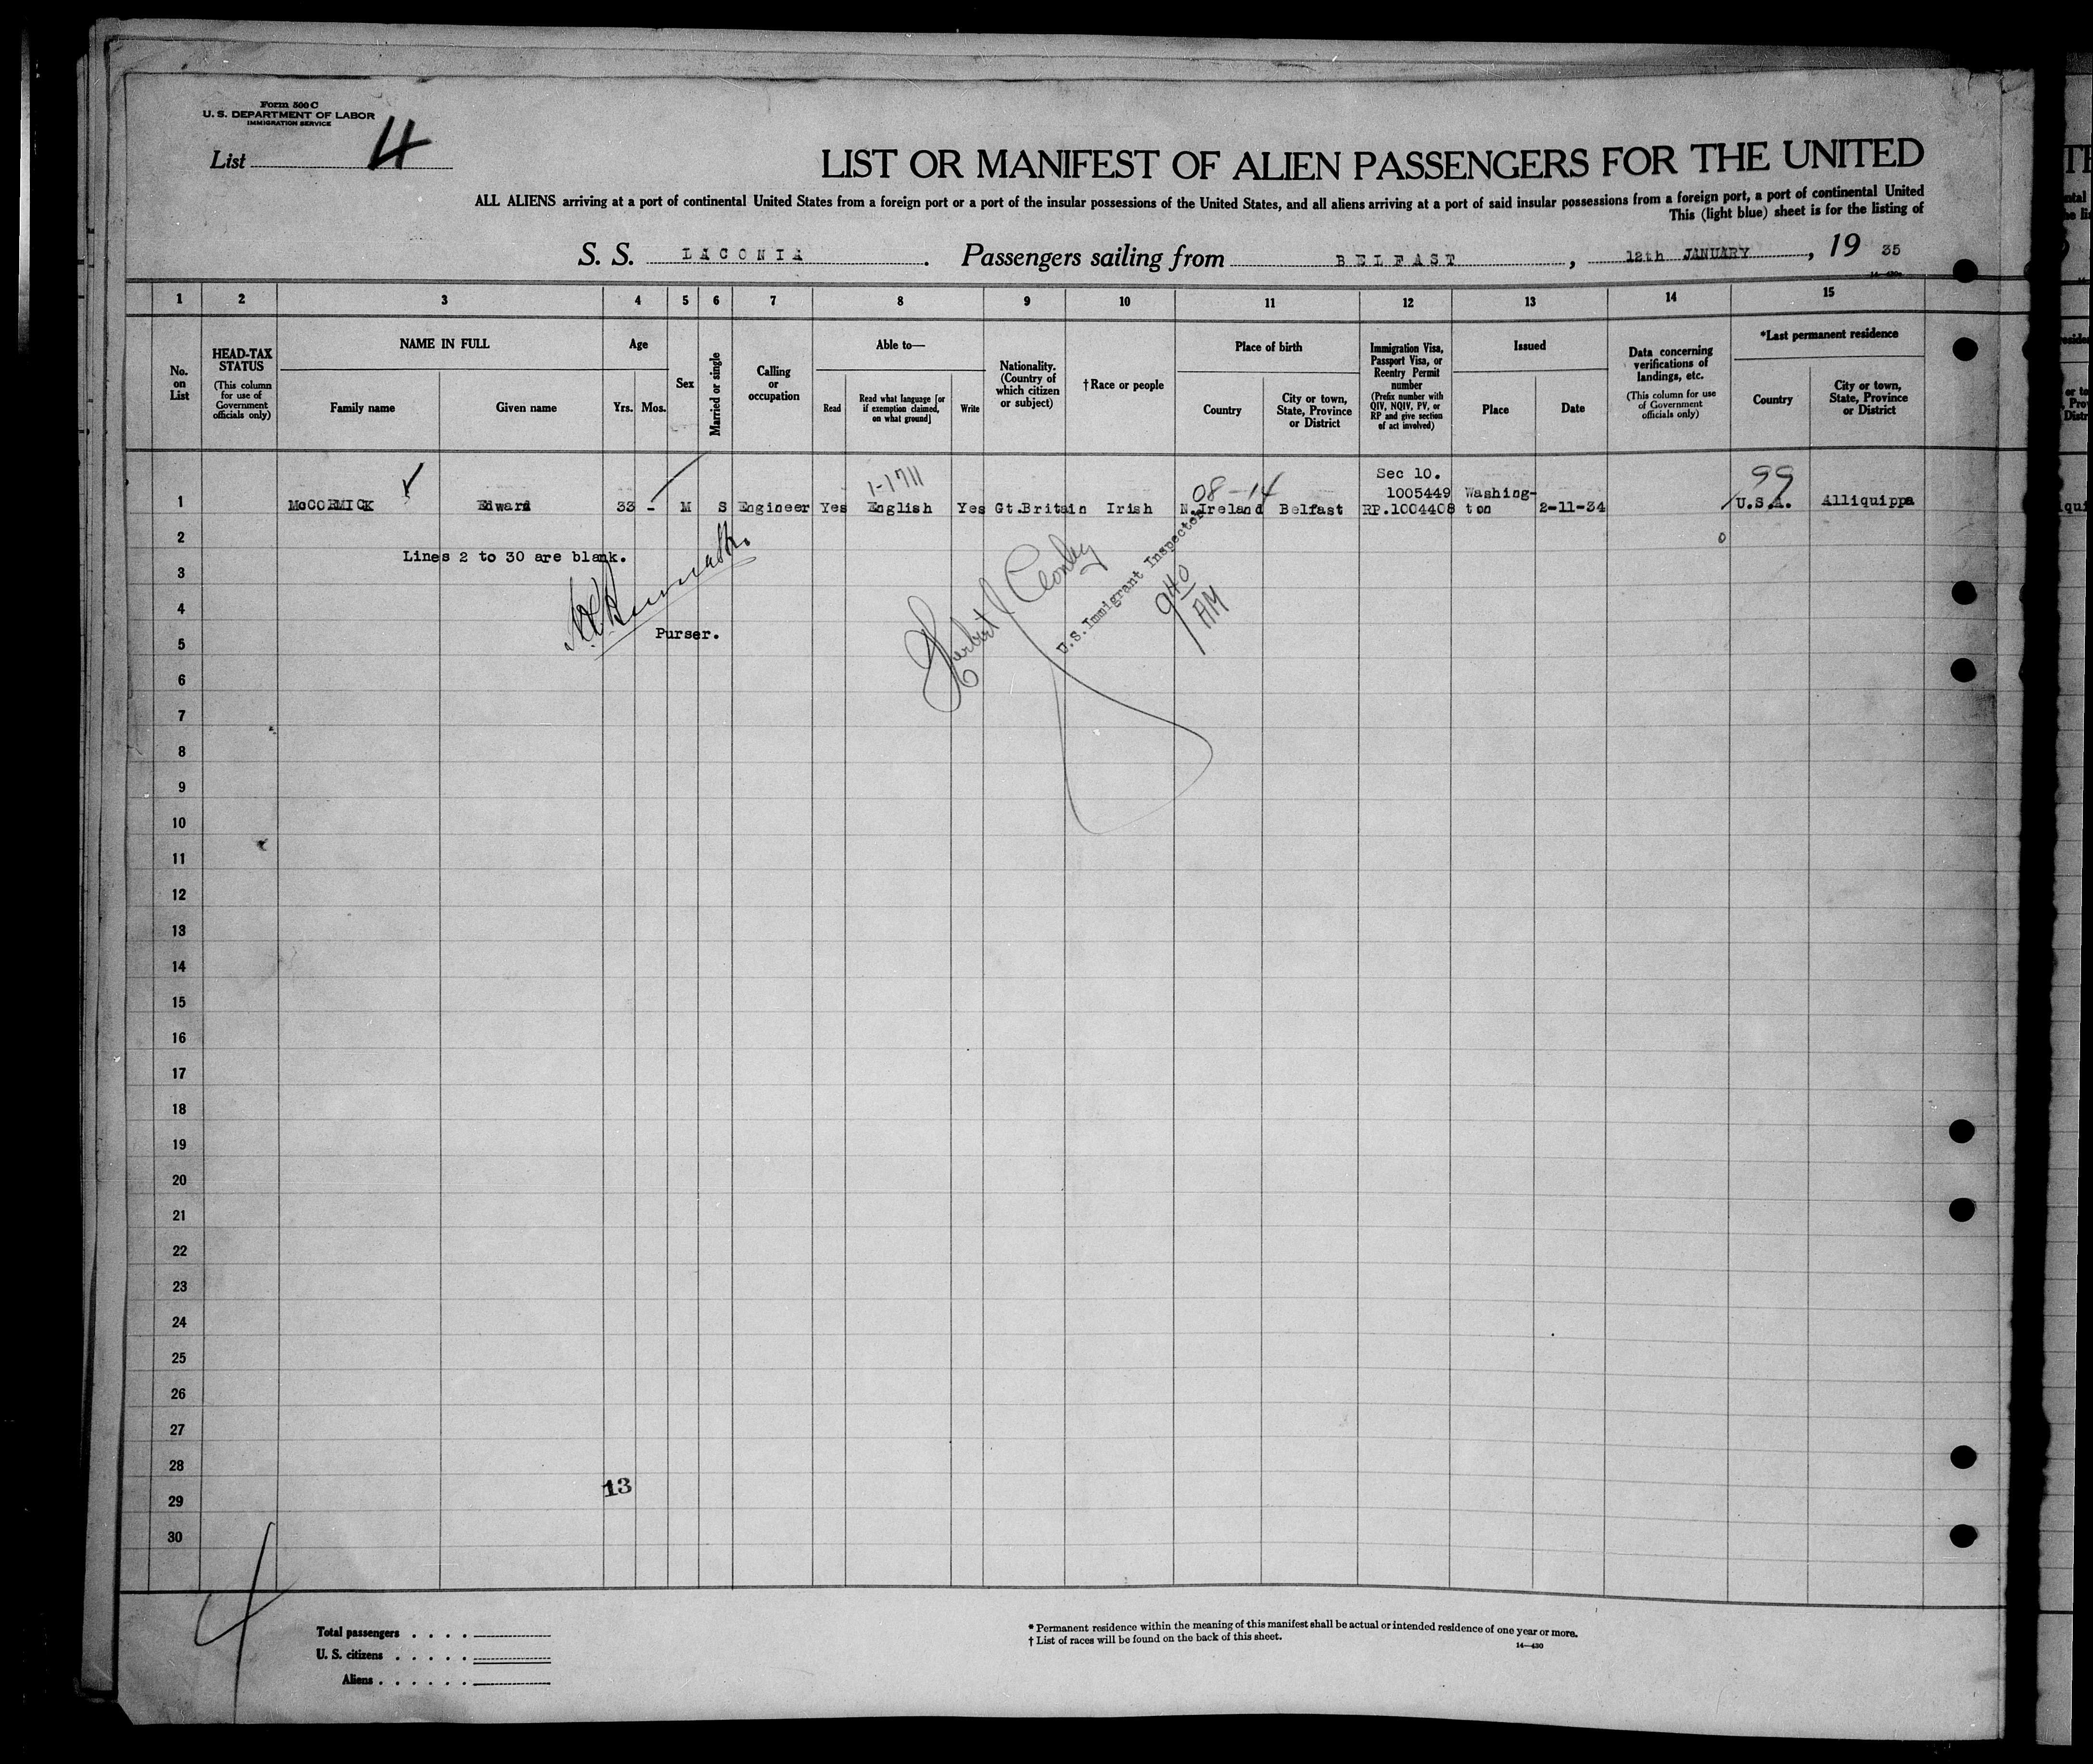 Form 500 C
U. S. DEPARTMENT OF LABOR
IMMIGRATION SERVICE
List 4
LIST OR MANIFEST OF ALIEN PASSENGERS FOR THE UNITED
ALL ALIENS arriving at a port of continental United States from a foreign port or a port of the insular possessions of the United States, and all aliens arriving at a port of said insular possessions from a foreign port, a port of continental United
This (light blue) sheet is for the listing of
S. S. LACONIA. Passengers sailing from BELFAST, 12th JANUARY, 19 35
1 2 3 4 5 6 7 8 9 10 11 12 13 14 15
No. on List
HEAD-TAX STATUS
(This column for use of Government officials only)
NAME IN FULL
Family name Given name
Age
Yrs. Mos.
Sex
Married or single
Calling or occupation
Able to—
Read Read what language [or if exemption claimed, on what ground] Write
Nationality. (Country of which citizen or subject)
†Race or people
Place of birth
Country City or town, State, Province or District
Immigration Visa, Passport Visa, or Reentry Permit number
(Prefix number with QIV, NQIV, PV, or RP and give section of act involved)
Issued
Place Date
Data concerning verifications of landings, etc.
(This column for use of Government officials only)
*Last permanent residence
Country City or town, State, Province or District
1-1711 08-14 Sec 10. 99
1005449 Washing-
1 McCORMICK Edward 33 - M S Engineer Yes English Yes Gt.Britain Irish N.Ireland Belfast RP.1004408 ton 2-11-34 U.S.A. Alliquippa
2
Lines 2 to 30 are blank.
3
4
Purser.
Herbert
U.S. Immigrant Inspector
9 40 AM
5
6
7
8
9
10
11
12
13
14
15
16
17
18
19
20
21
22
23
24
25
26
27
28
13
29
30
4
Total passengers . . . .
U. S. citizens . . . . .
Aliens . . . . . .
* Permanent residence within the meaning of this manifest shall be actual or intended residence of one year or more.
† List of races will be found on the back of this sheet.
14—430